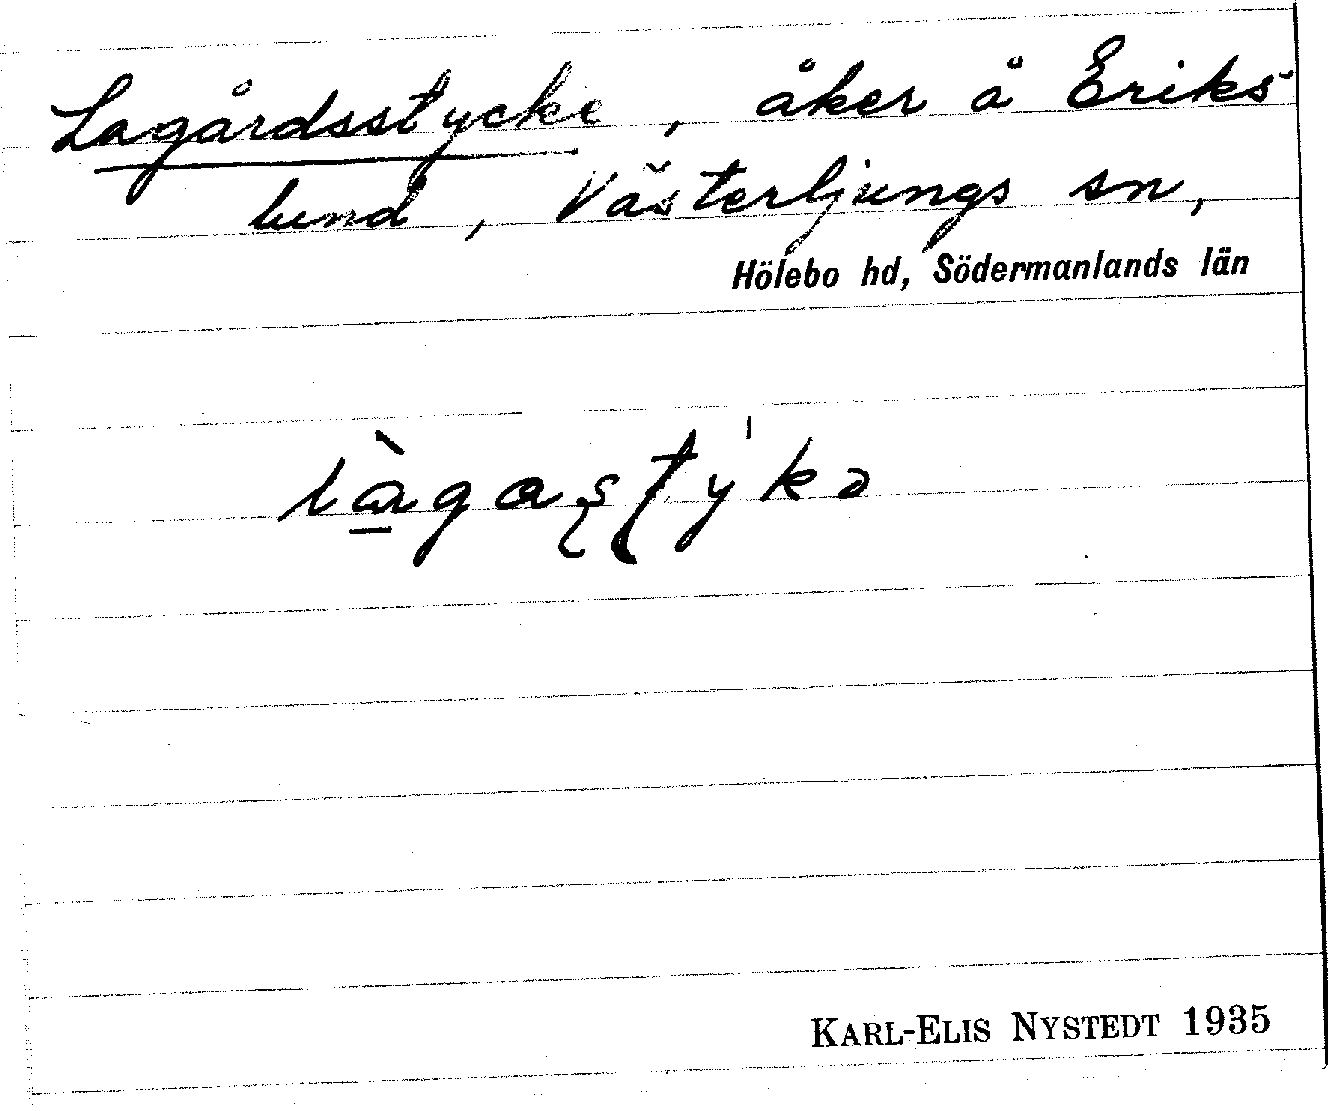 Lagårdsstycke, åker å Eriks-
lund, Västerljungs sn,
Hölebo hd, Södermanlands län
làgaʂʈyˈkə
KARL-ELIS NYSTEDT 1935